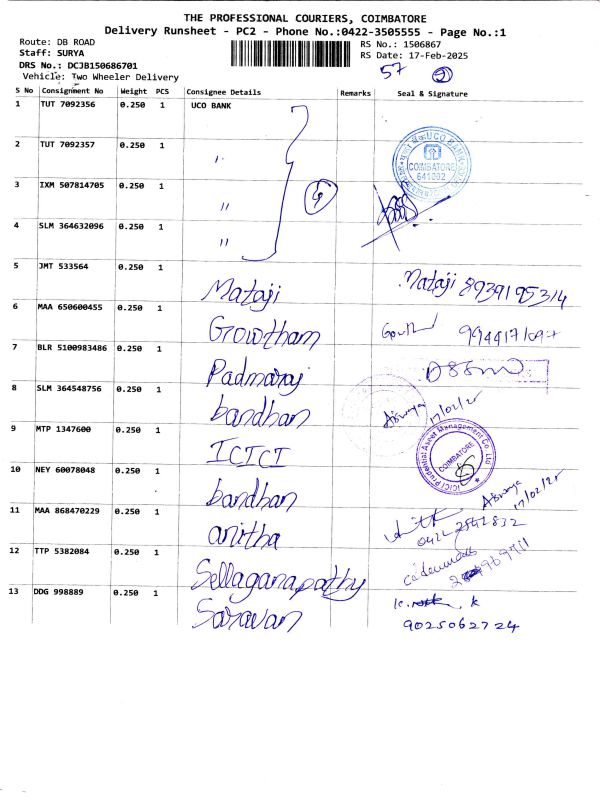 THE PROFESSIONAL COURIERS, COIMBATORE
Delivery Runsheet - PC2 - Phone No.:0422-3505555 - Page No.:1
Route: DB ROAD RS No.: 1506867
Staff: SURYA RS Date: 17-Feb-2025
DRS No.: DCJB150686701 57
Vehicle: Two Wheeler Delivery
S No Consignment No Weight PCS Consignee Details Remarks Seal & Signature
1 TUT 7092356 0.250 1 UCO BANK
2 TUT 7092357 0.250 1 "
UCO BANK
COIMBATORE
641002
3 IXM 507814705 0.250 1 "
4 SLM 364632096 0.250 1 "
5 JMT 533564 0.250 1 Mataji Mataji 8939195314
6 MAA 650600455 0.250 1 Growtham
7 BLR 5100983486 0.250 1 Padmaraj
8 SLM 364548756 0.250 1 bandhan Aiswrya 17/02/25
9 MTP 1347600 0.250 1 ICICI
ICICI Prudential Asset Management Co. Ltd.
COIMBATORE
10 NEY 60078048 0.250 1 bandhan Aiswrya 17/02/25
11 MAA 868470229 0.250 1 anitha
0422 2542832
12 TTP 5382084 0.250 1 Sellaganapathy
13 DDG 998889 0.250 1 Saravan
9025062724